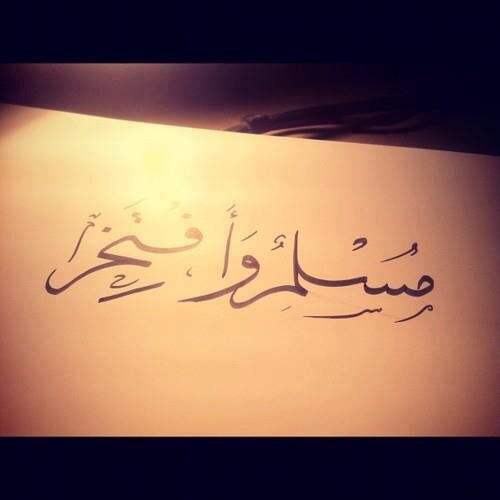 مُسْلِمُ وَأَفْتَخِرُ